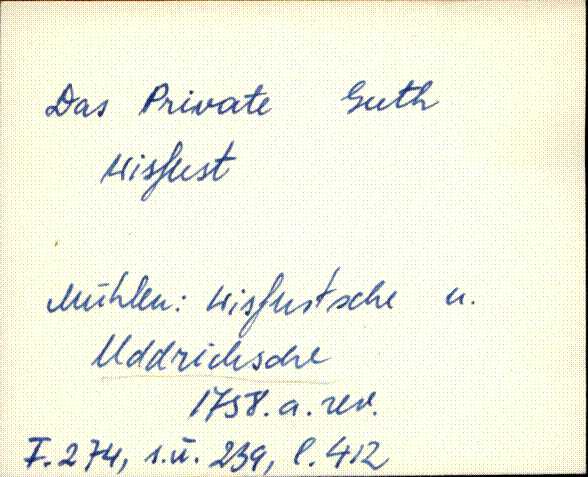 Das Private Guth
Kisfust
Mühlen: Kisfustsche u.
Uddrichsche
1758. a. rev.
F. 274, s. ü. 239, l. 412